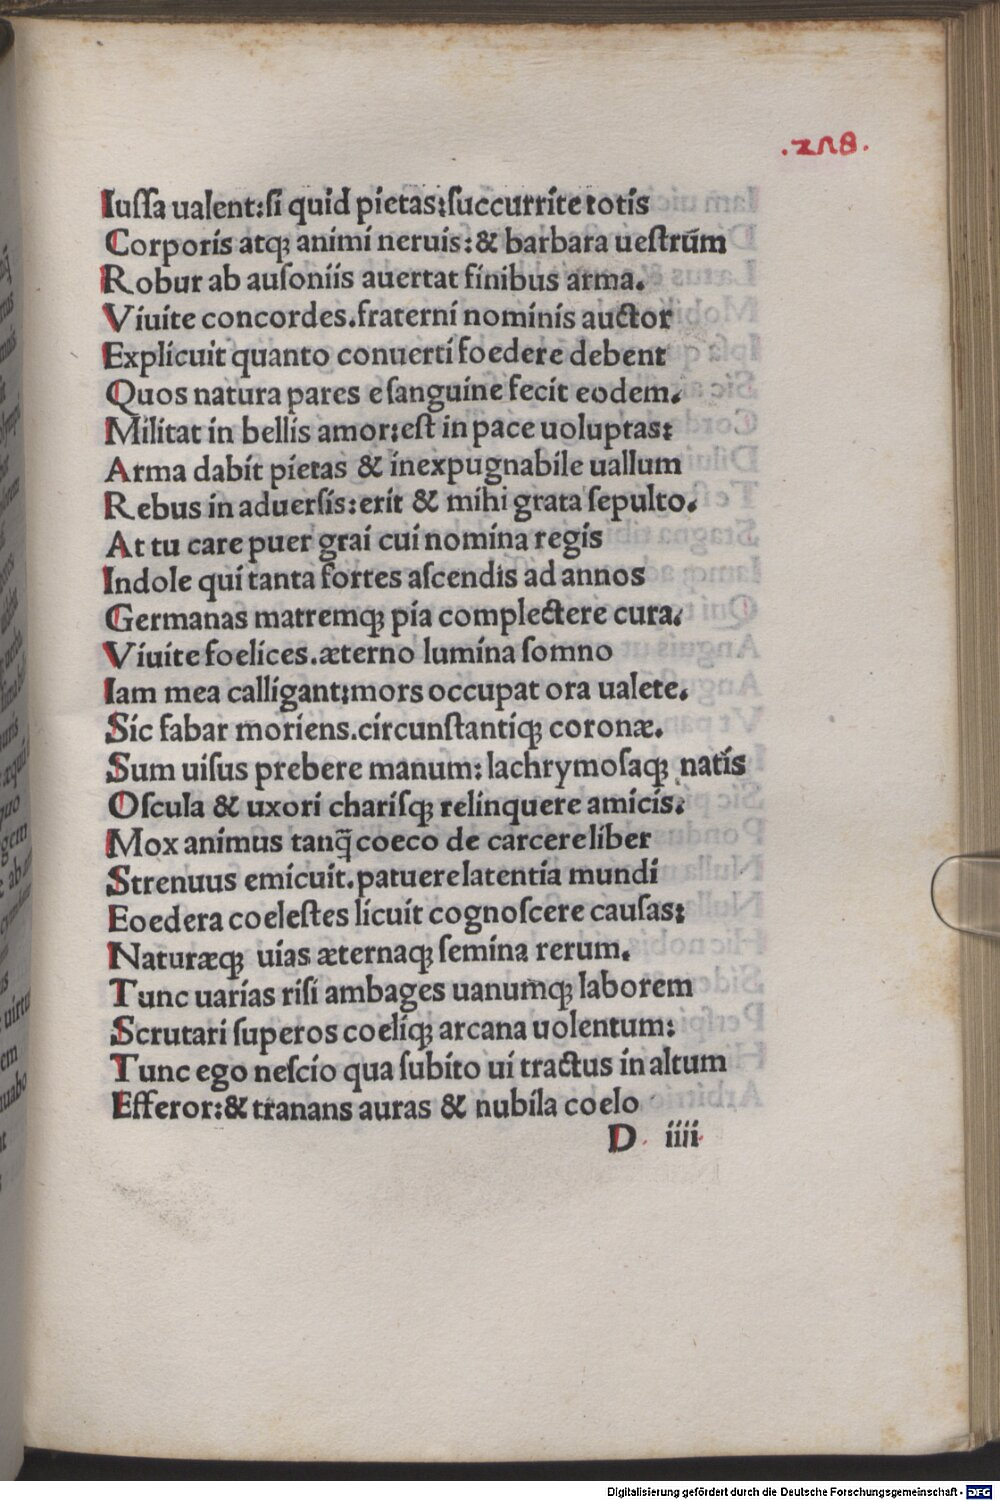 .278.
Iuſſa ualent:ſi quid pietas:ſuccurrite totis
Corporis atq; animi neruis:& barbara ueſtrūm
Robur ab auſoniis auertat finibus arma.
Viuite concordes.fraterni nominis auctor
Explicuit quanto conuerti foedere debent
Quos natura pares e ſanguine fecit eodem.
Militat in bellis amor:eſt in pace uoluptas:
Arma dabit pietas & inexpugnabile uallum
Rebus in aduerſis:erit & mihi grata ſepulto.
At tu care puer grai cui nomina regis
Indole qui tanta fortes aſcendis ad annos
Germanas matremq; pia complectere cura.
Viuite foelices.æterno lumina ſomno
Iam mea calligant:mors occupat ora ualete.
Sic fabar moriens.circunſtantiq; coronæ.
Sum uiſus prebere manum:lachrymoſaq; natis
Oſcula & uxori chariſq; relinquere amicis.
Mox animus tanq̃ coeco de carcere liber
Strenuus emicuit.patuere latentia mundi
Eoedera coeleſtes licuit cognoſcere cauſas:
Naturæq; uias æternaq; ſemina rerum.
Tunc uarias riſi ambages uanumq; laborem
Scrutari ſuperos coeliq; arcana uolentum:
Tunc ego neſcio qua ſubito ui tractus in altum
Efferor:& tranans auras & nubila coelo
D iiii
Digitalisierung gefördert durch die Deutsche Forschungsgemeinschaft - DFG